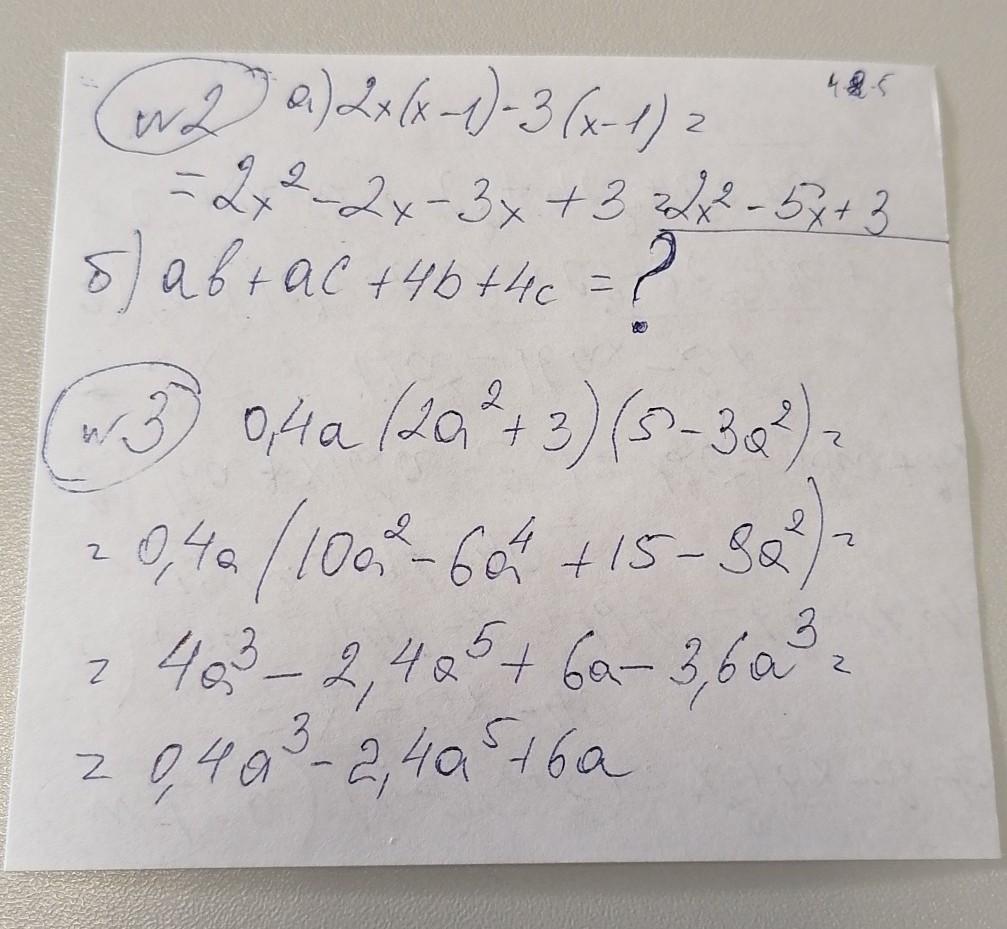 №2 а) 2x(x-1)-3(x-1)=
=2x²-2x-3x+3=2x²-5x+3
б) ab+ac+4b+4c=?
№3 0,4a(2a²+3)(5-3a²)=
=0,4a(10a²-6a⁴+15-9a²)=
=4a³-2,4a⁵+6a-3,6a³=
=0,4a³-2,4a⁵+6a